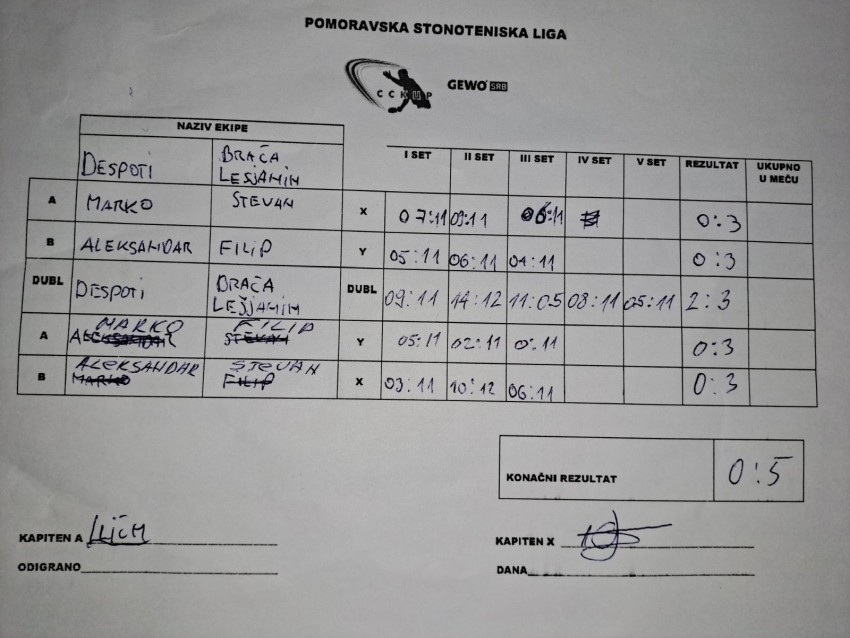 POMORAVSKA STONOTENISKA LIGA
CCKUP GEWO SRB
NAZIV EKIPE
DESPOTI BRAĆA LESJANIN I SET II SET III SET IV SET V SET REZULTAT UKUPNO U MEČU
A MARKO STEVAN X 07:11 09:11 06:11 0:3
B ALEKSANDAR FILIP Y 05:11 06:11 04:11 0:3
DUBL DESPOTI BRAĆA LEŠJANIN DUBL 09:11 14:12 11:05 08:11 05:11 2:3
A MARKO FILIP Y 05:11 02:11 0:11 0:3
ALEKSANDAR STEVAN
B ALEKSANDAR STEVAN X 03:11 10:12 06:11 0:3
MARKO FILIP
KONAČNI REZULTAT 0:5
KAPITEN A KAPITEN X
ODIGRANO DANA